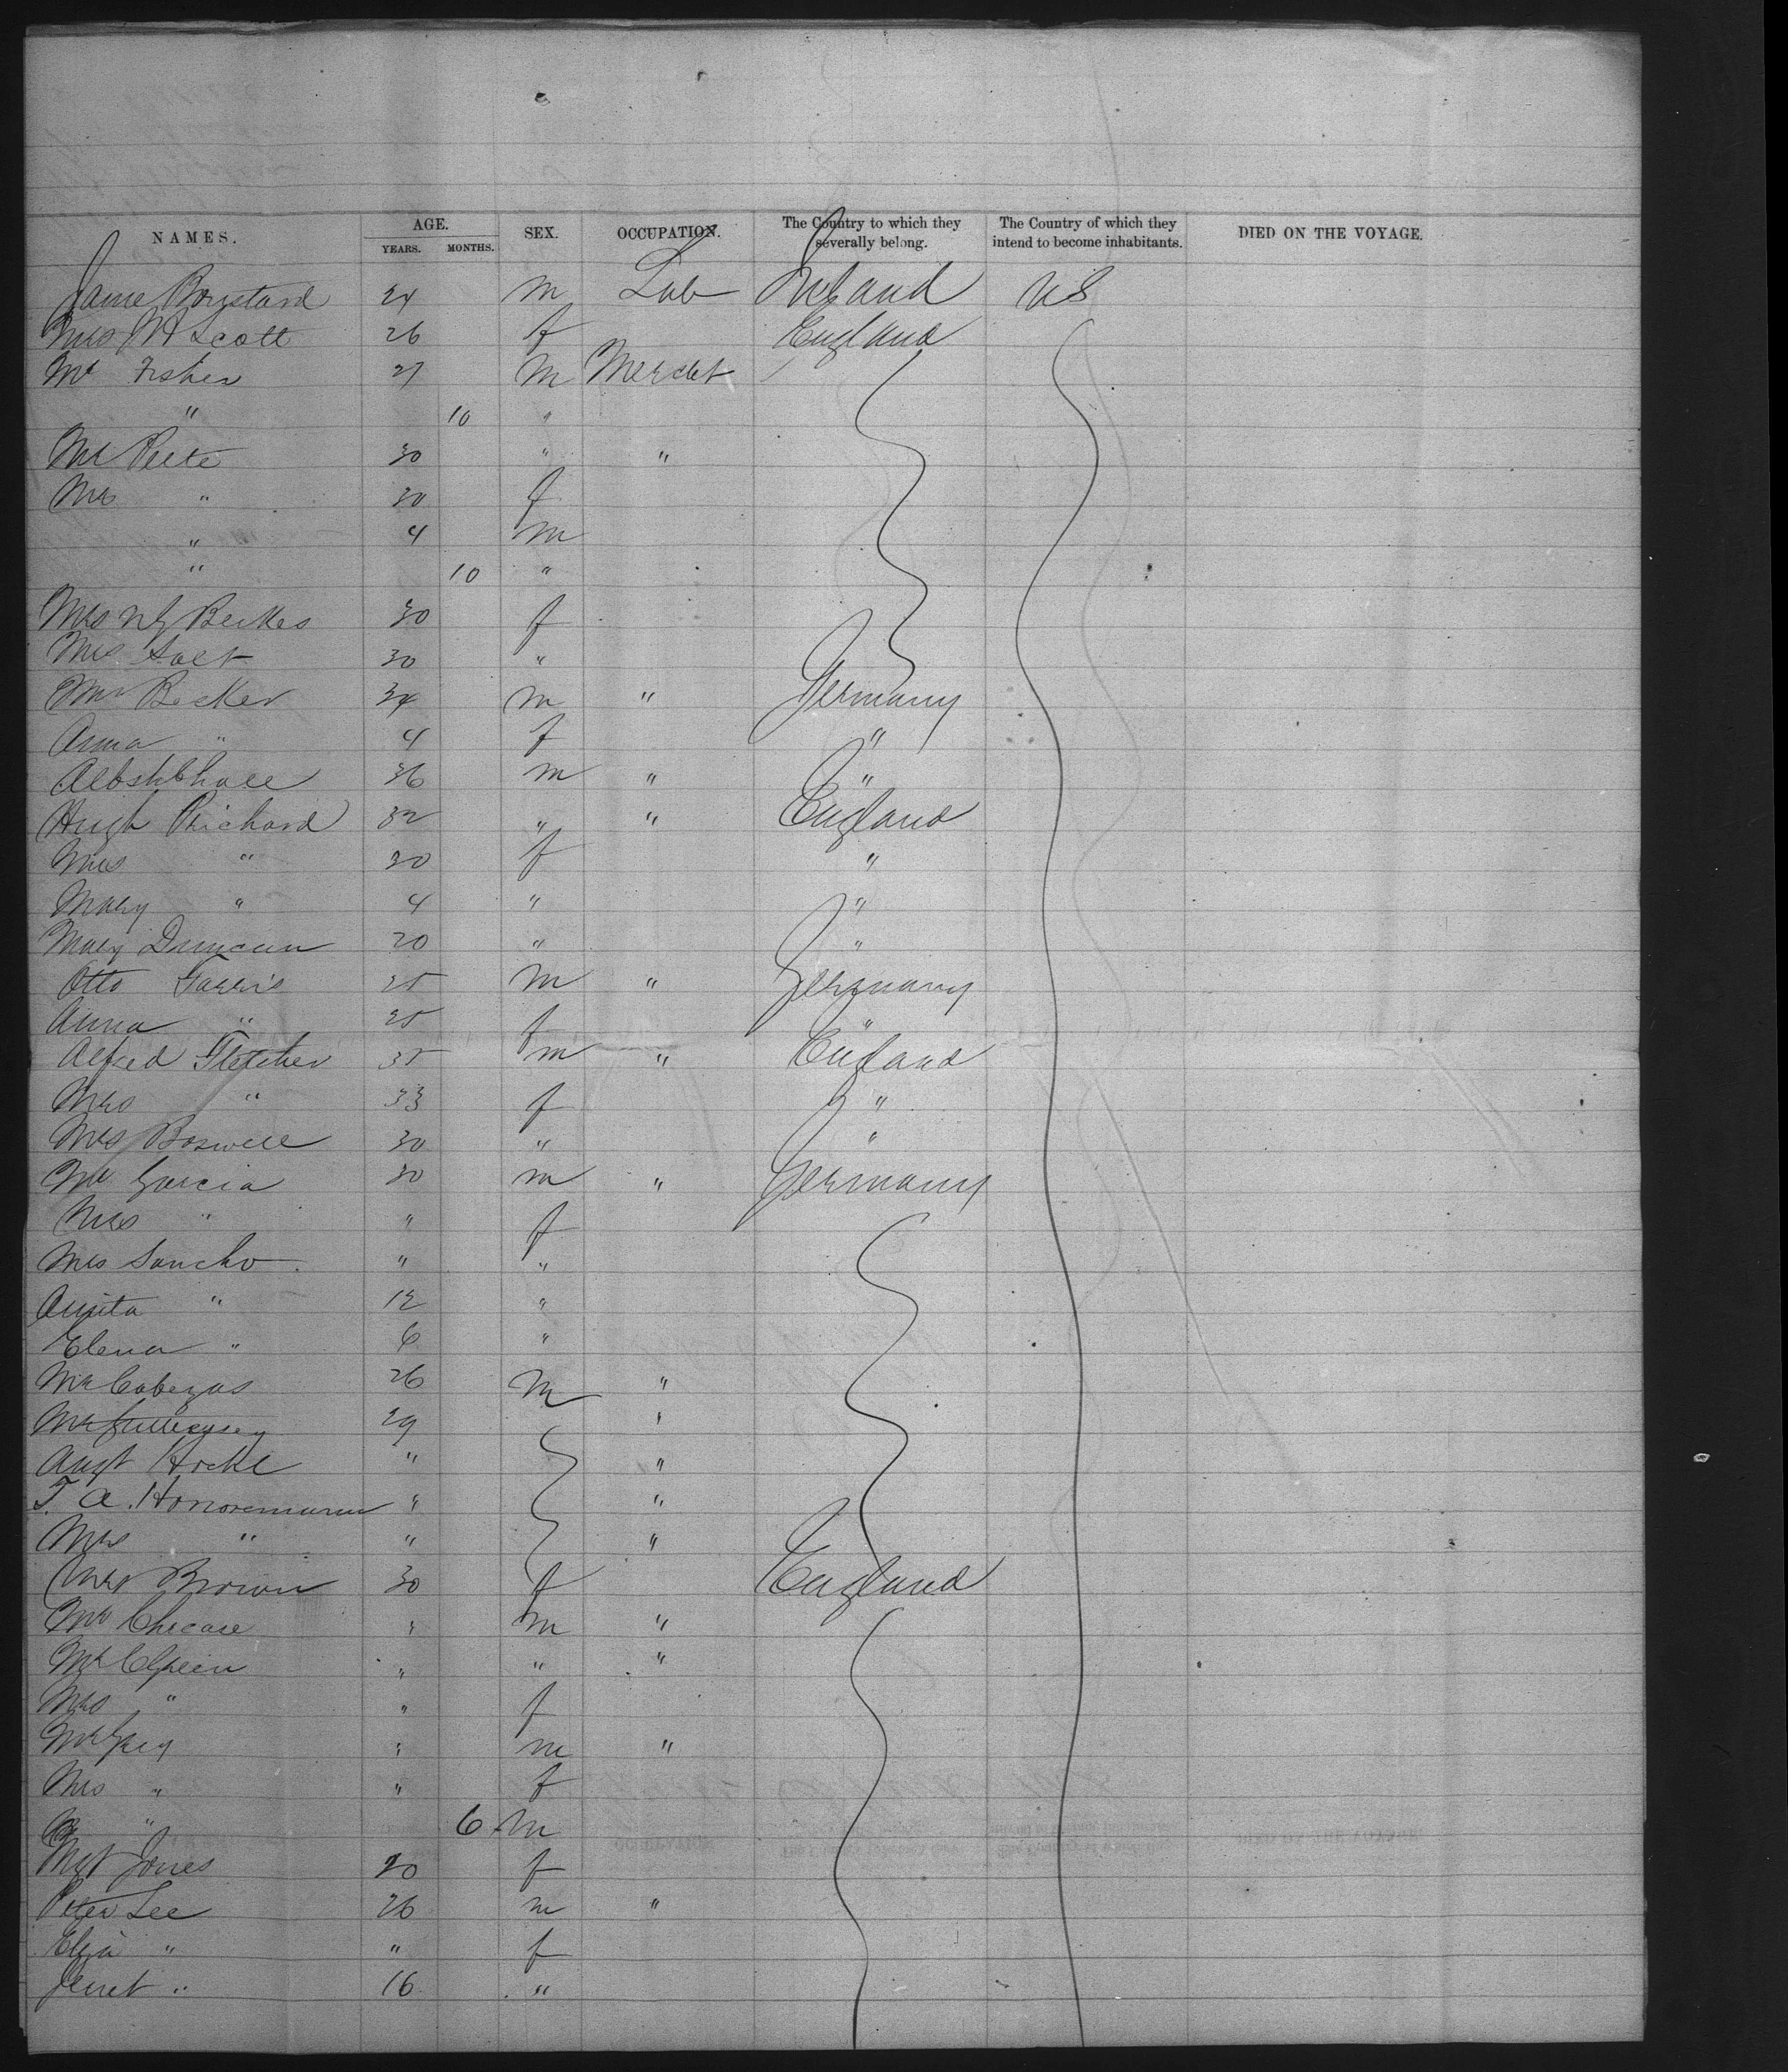 NAMES. AGE. YEARS. MONTHS. SEX. OCCUPATION. The Country to which they severally belong. The Country of which they intend to become inhabitants. DIED ON THE VOYAGE.
Jame 24 m Lab Ireland US
Mrs Scott 26 f England
Mr Fisher 27 m Mercht
" 10 "
Mr Peete 30 " "
Mrs " 30 f
" 4 m
" 10 "
Mrs 30 f
Mrs 30 "
Mr Becker 34 m " Germany
Anna " 4 f "
36 m " "
Hugh Prichard 32 " " England
Mrs " 30 f "
Mary " 4 " "
Mary Duncan 20 " "
Otto 25 m " Germany
Anna " 25 f "
Alfred Fletcher 35 m " England
Mrs " 33 f "
Mrs Boswell 30 " "
Mr Garcia 30 m " Germany
Mrs " " f
Mrs Sancho " "
Anita " 12 "
Elena " 6 "
Mr Cabezas 26 m "
Mr 29 "
Augt " "
T. A. " "
Mrs " " "
Mrs Brown 30 f England
Mr " m "
Mr " " "
Mrs " " f
Mr " m "
Mrs " " f
" 6 m
Mgt Jones 20 f
Peter Lee 26 m "
Eliza " " f
Jenet " 16 "